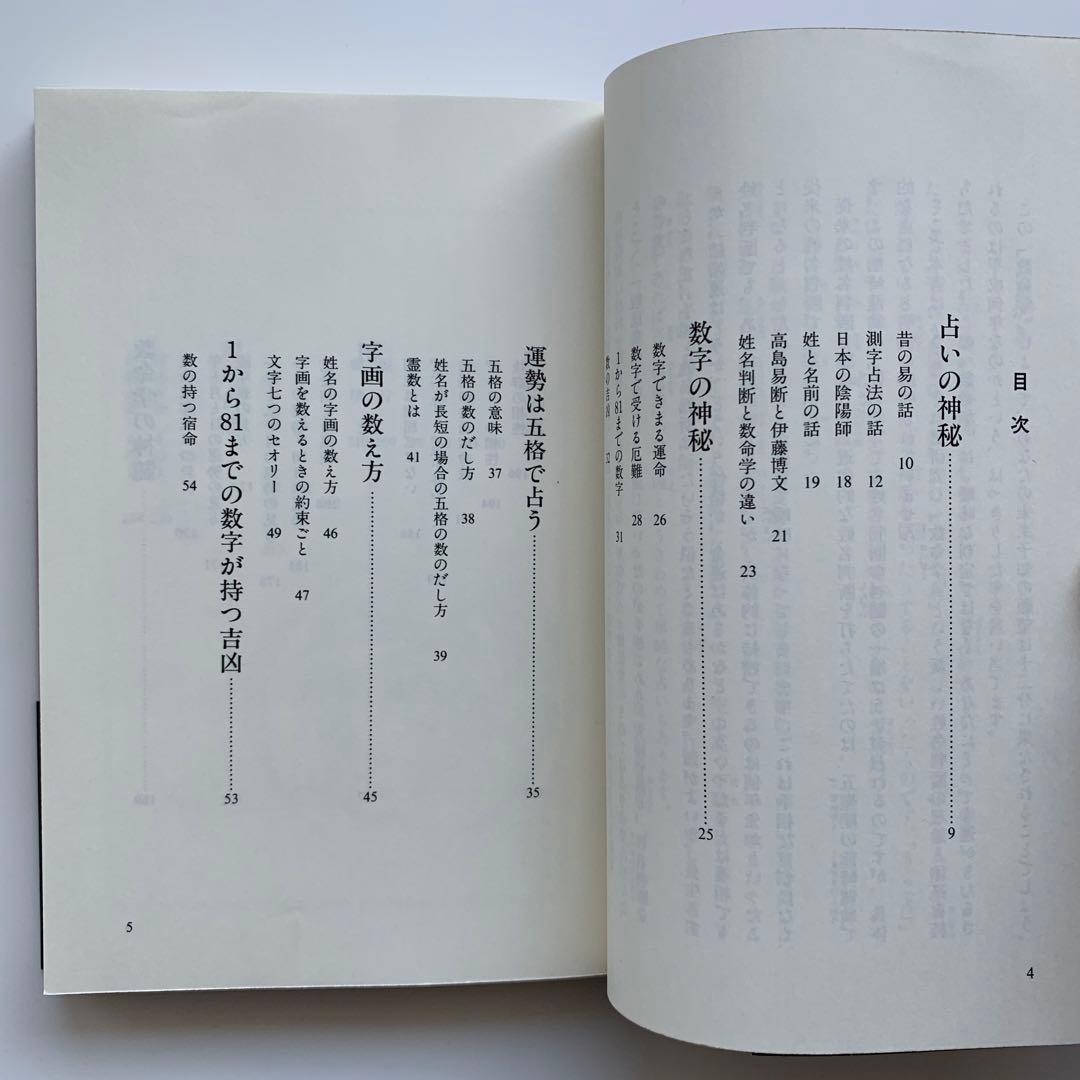 目次
占いの神秘……………9
昔の易の話 10
測字占法の話 12
日本の陰陽師 18
姓と名前の話 19
高島易断と伊藤博文 21
姓名判断と数命学の違い 23
数字の神秘……………25
数字できまる運命 26
数字で受ける厄難 28
1から81までの数字 31
数の吉凶 32
4
運勢は五格で占う……………35
五格の意味 37
五格の数のだし方 38
姓名が長短の場合の五格の数のだし方 39
霊数とは 41
字画の数え方……………45
姓名の字画の数え方 46
字画を数えるときの約束ごと 47
文字七つのセオリー 49
1から81までの数字が持つ吉凶……………53
数の持つ宿命 54
5